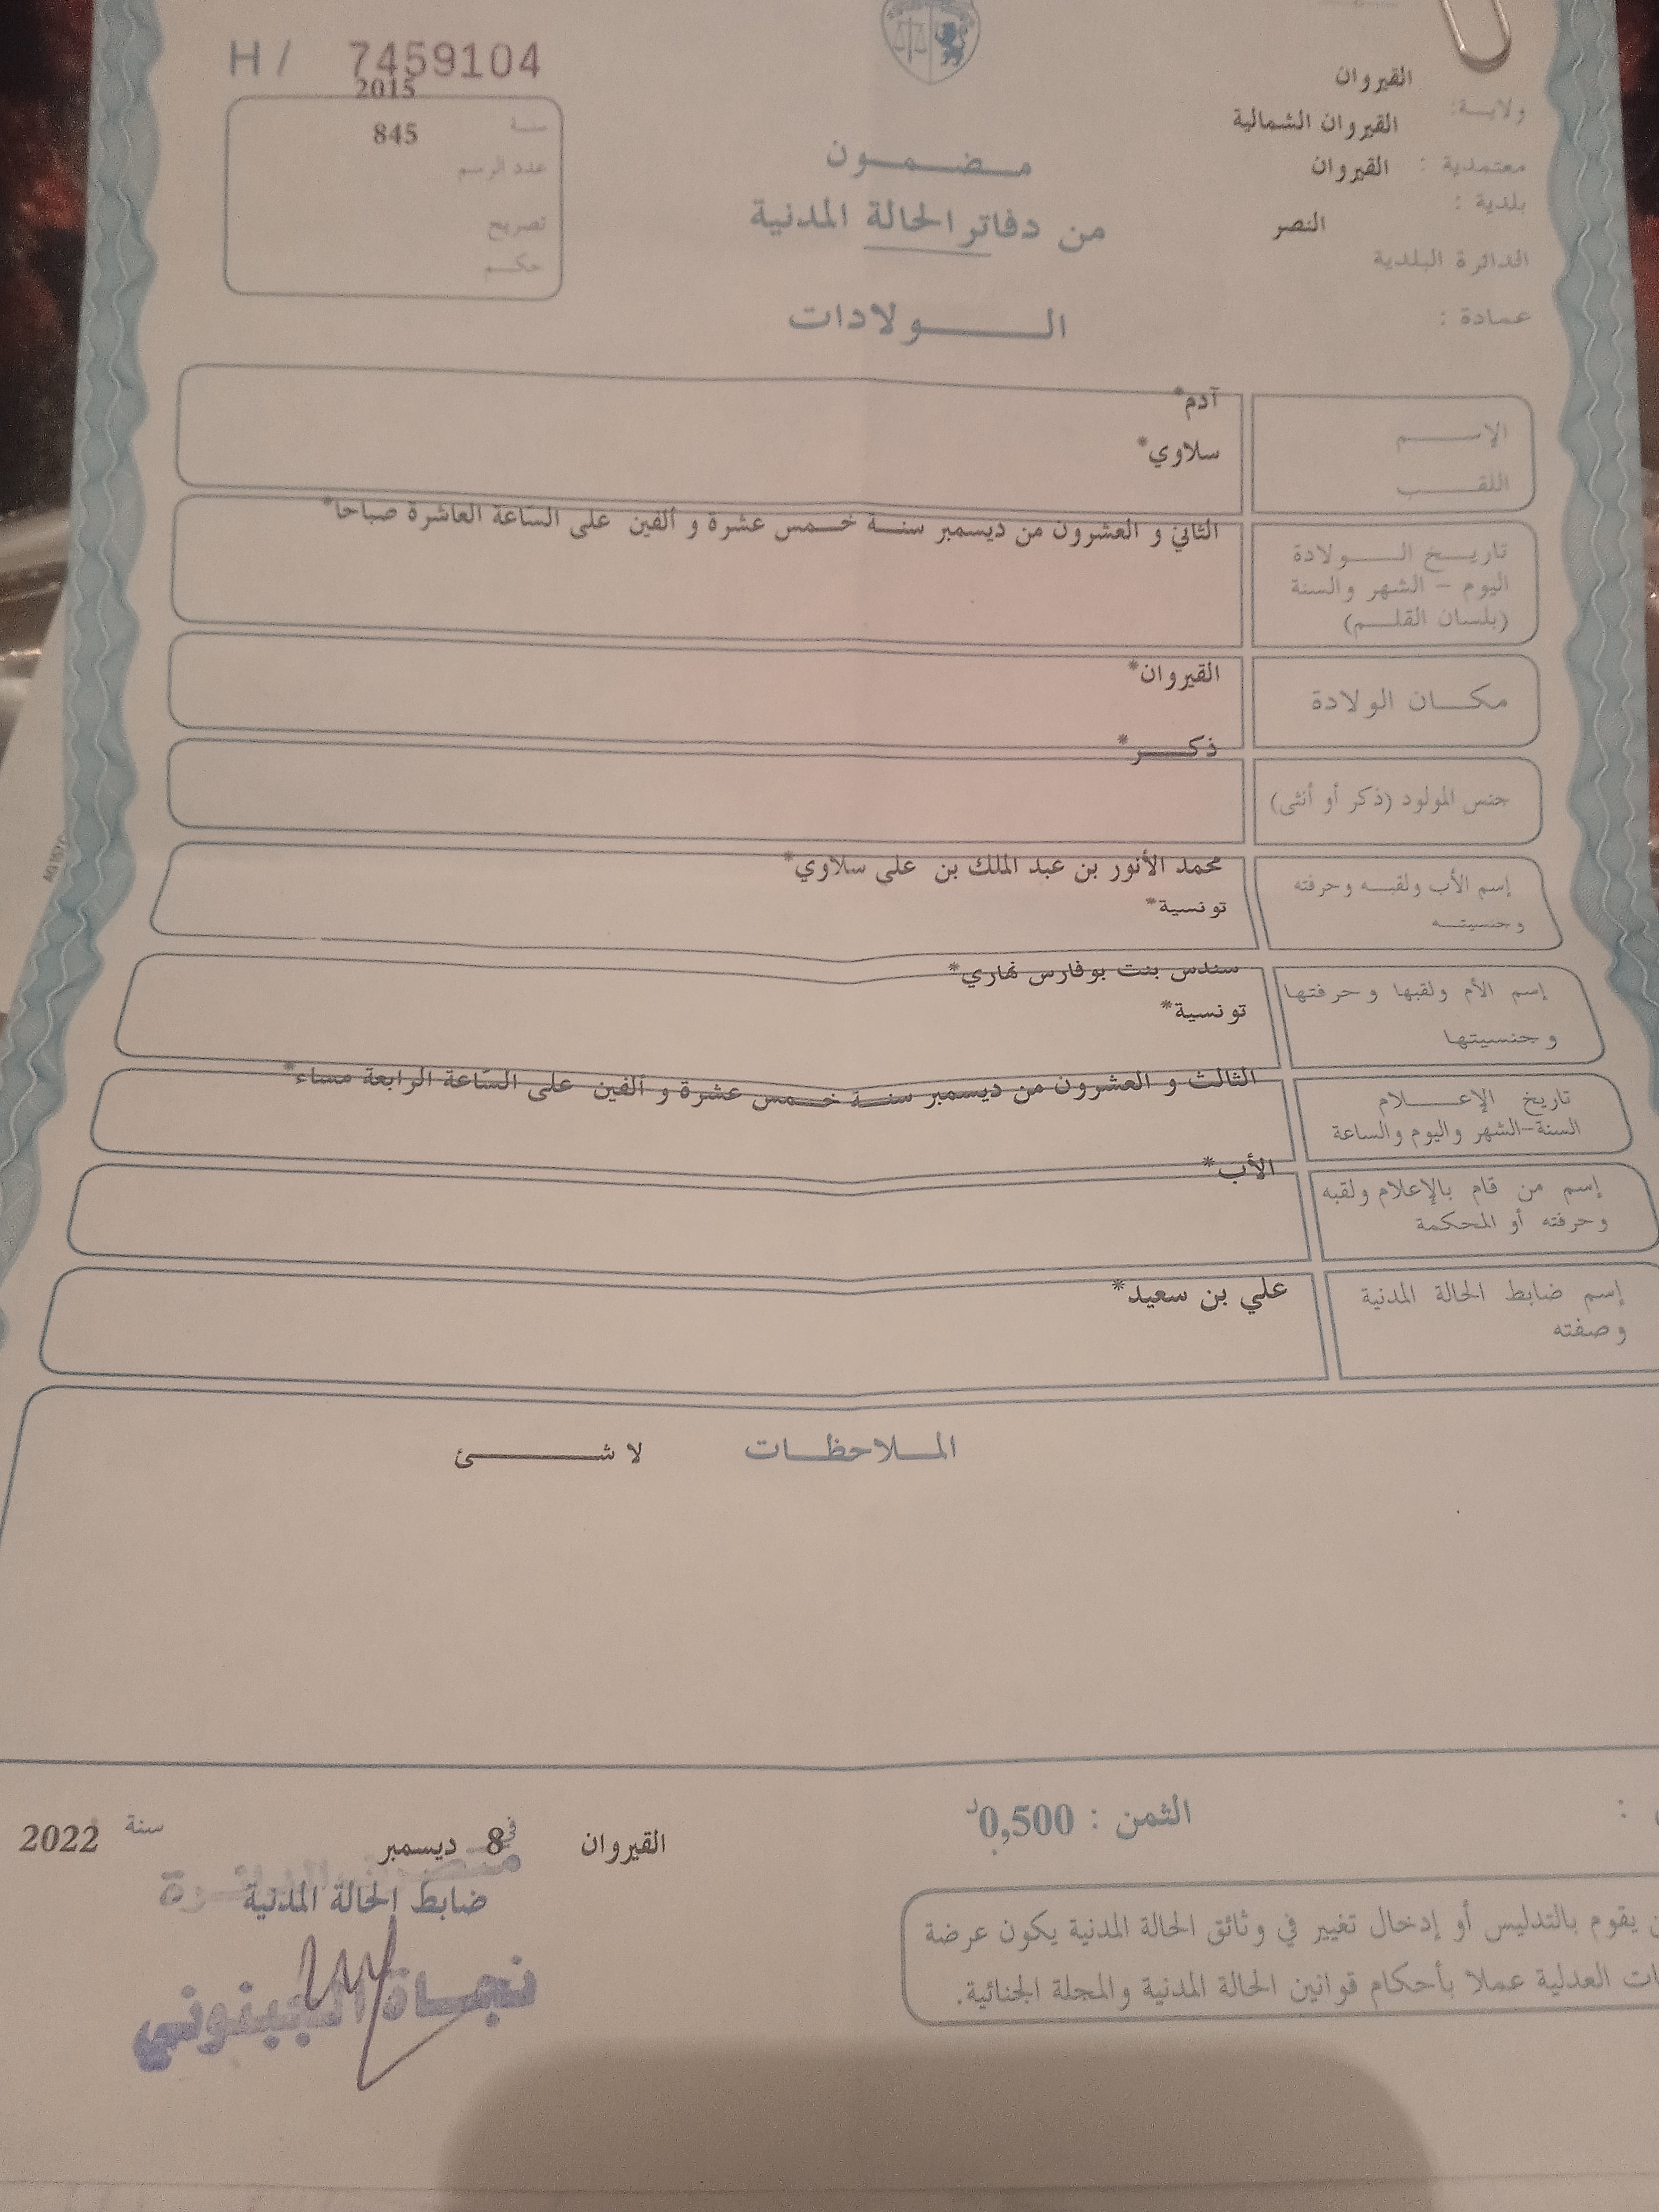 H / 7459104
2015
سنة
845
عدد الرسم
تصريح
حكم
القيروان
ولاية:
القيروان الشمالية
معتمدية :
القيروان
بلدية :
النصر
الدائرة البلدية
عمادة :
مضمون
من دفاتر الحالة المدنية
الولادات
آدم*
الإسم
سلاوي*
اللقب
الثاني و العشرون من ديسمبر سنة خمس عشرة و ألفين على الساعة العاشرة صباحا*
تاريخ الولادة
اليوم – الشهر والسنة
(بلسان القلم)
القيروان*
مكان الولادة
ذكر*
جنس المولود (ذكر أو أنثى)
محمد الأنور بن عبد الملك بن علي سلاوي*
إسم الأب ولقبه وحرفته
تونسية*
وجنسيته
سندس بنت بوفارس نهاري*
إسم الأم ولقبها وحرفتها
تونسية*
وجنسيتها
الثالث و العشرون من ديسمبر سنة خمس عشرة و ألفين على الساعة الرابعة مساء*
تاريخ الإعلام
السنة-الشهر واليوم والساعة
الأب*
إسم من قام بالإعلام ولقبه
وحرفته أو المحكمة
علي بن سعيد*
إسم ضابط الحالة المدنية
وصفته
الملاحظات لا شئ
الثمن : 0,500د
القيروان في 8 ديسمبر سنة 2022
ضابط الحالة المدنية
نجاة
يقوم بالتدليس أو إدخال تغيير في وثائق الحالة المدنية يكون عرضة
العدلية عملا بأحكام قوانين الحالة المدنية والمجلة الجنائية.